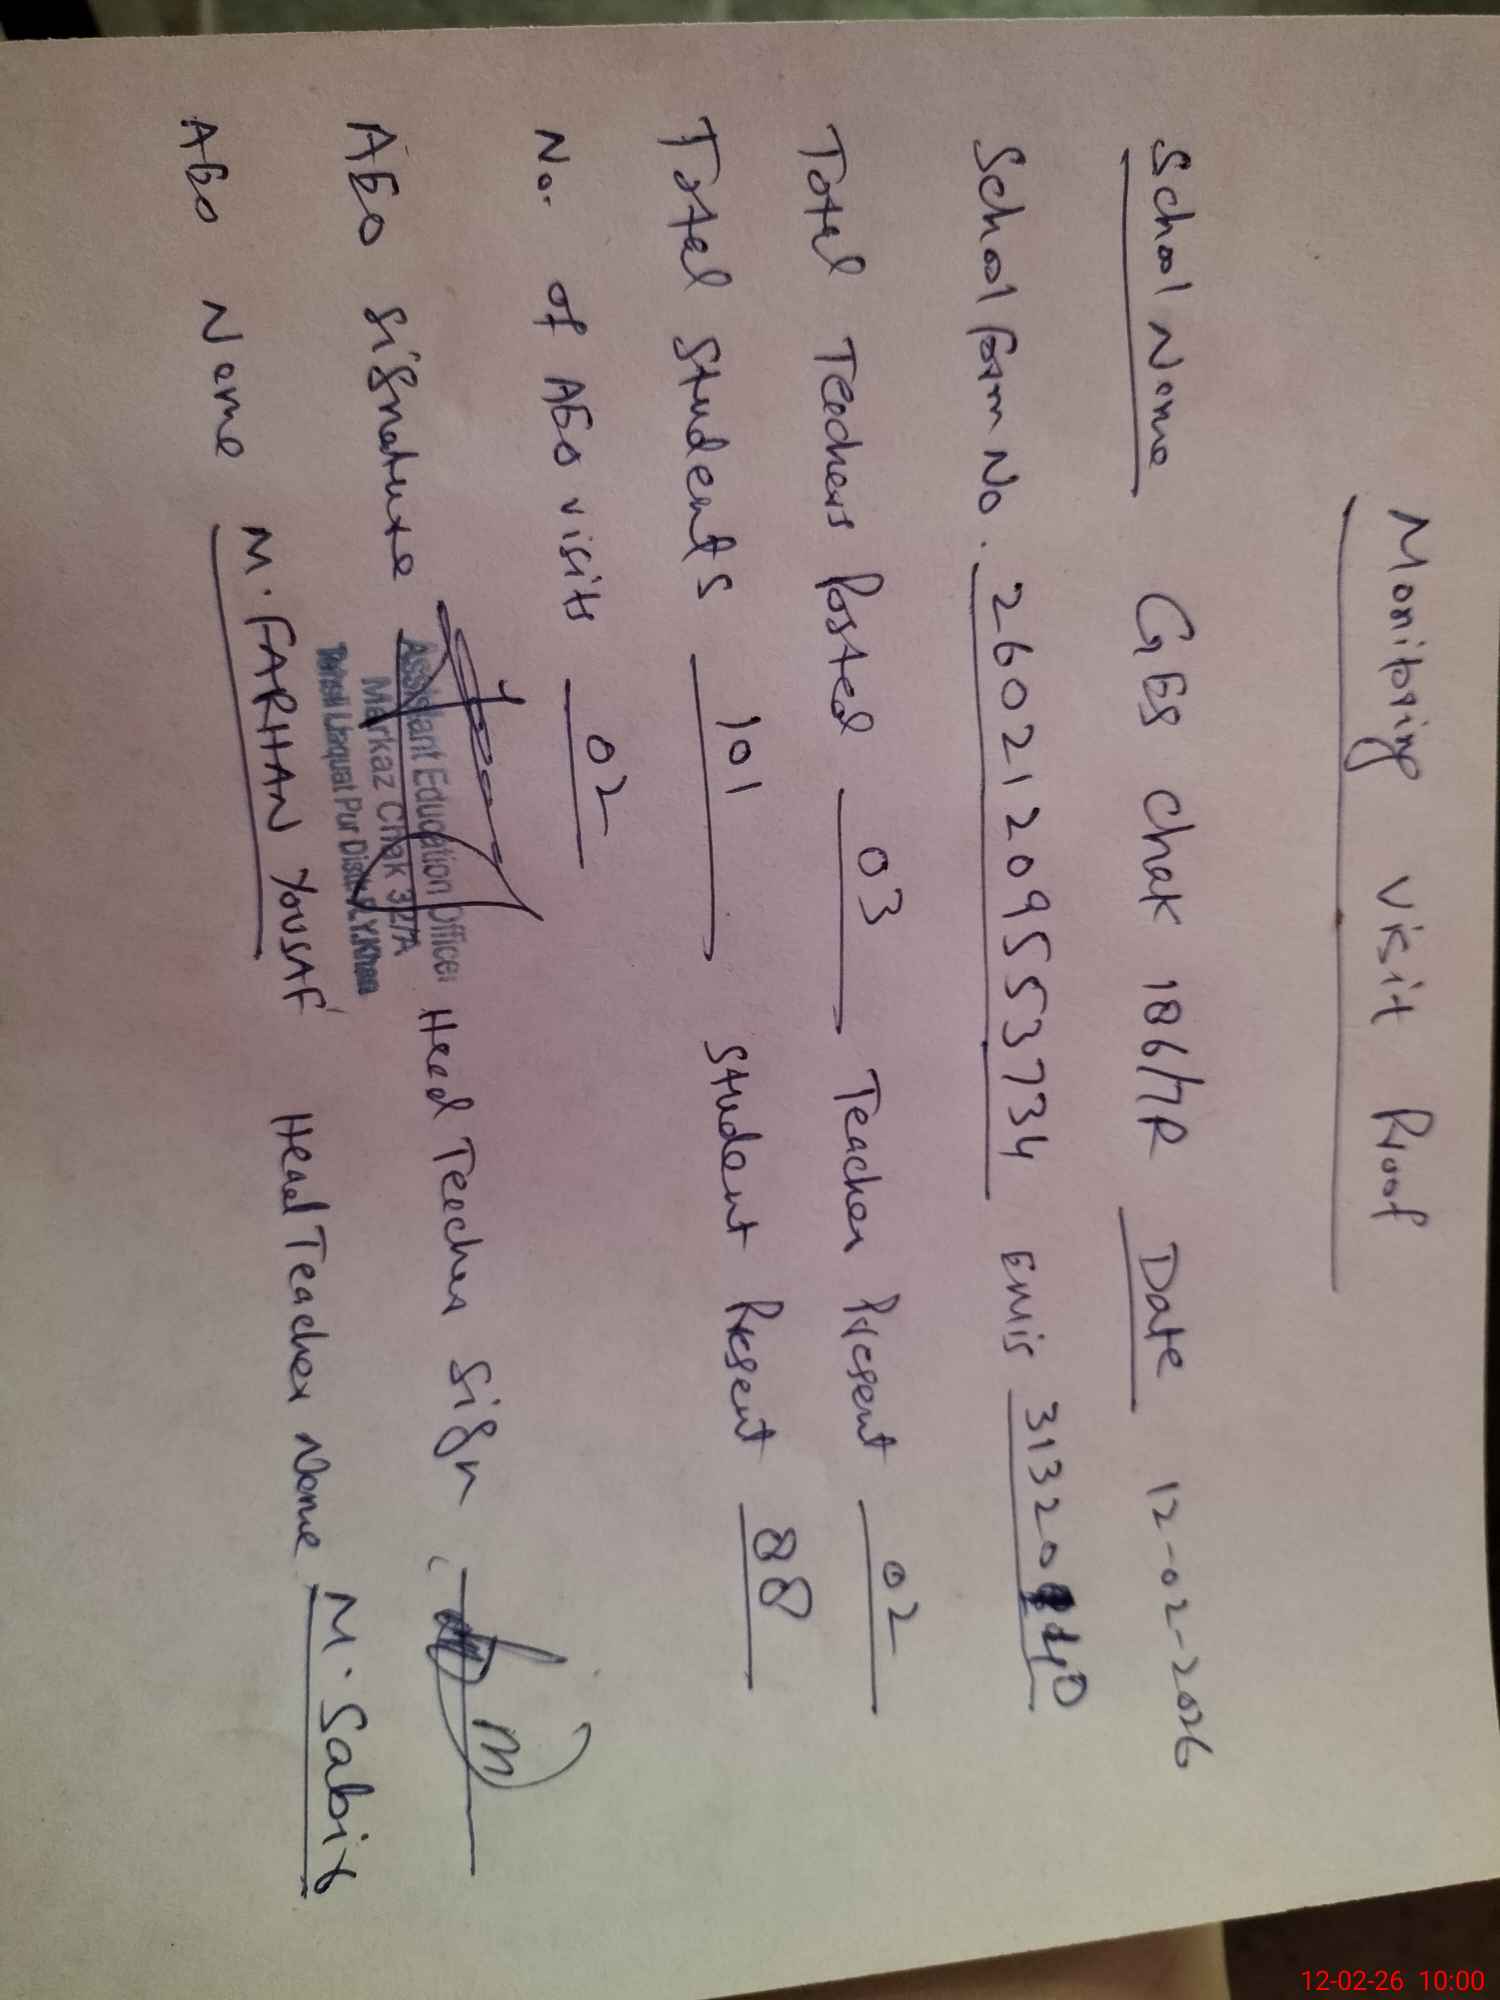 Monitoring visit Proof
School Name GES Chak 186/7R Date 12-02-2026
School form No. 2602120955 3734 Emis 31320 40
Total Teachers Posted 03 Teacher Present 02
Total Students 101 Student Present 88
No. of AEO visits 02
AEO Signature Head Teacher Sign
Assistant Education Officer
Markaz Chak 32/A
Tehsil Liaquat Pur Distt. R.Y.Khan
AEO Name M. FARHAN YOUSAF Head Teacher Name M. Sabir
12-02-26 10:00